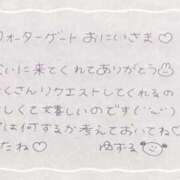 ウォーターゲート おにいさま♡
いに来てくれてありがとう
くさんリクエストしてくれるの
しくて嬉しいのです(´︶`)
は何するか考えておいてね♡
たね♡ ゆする